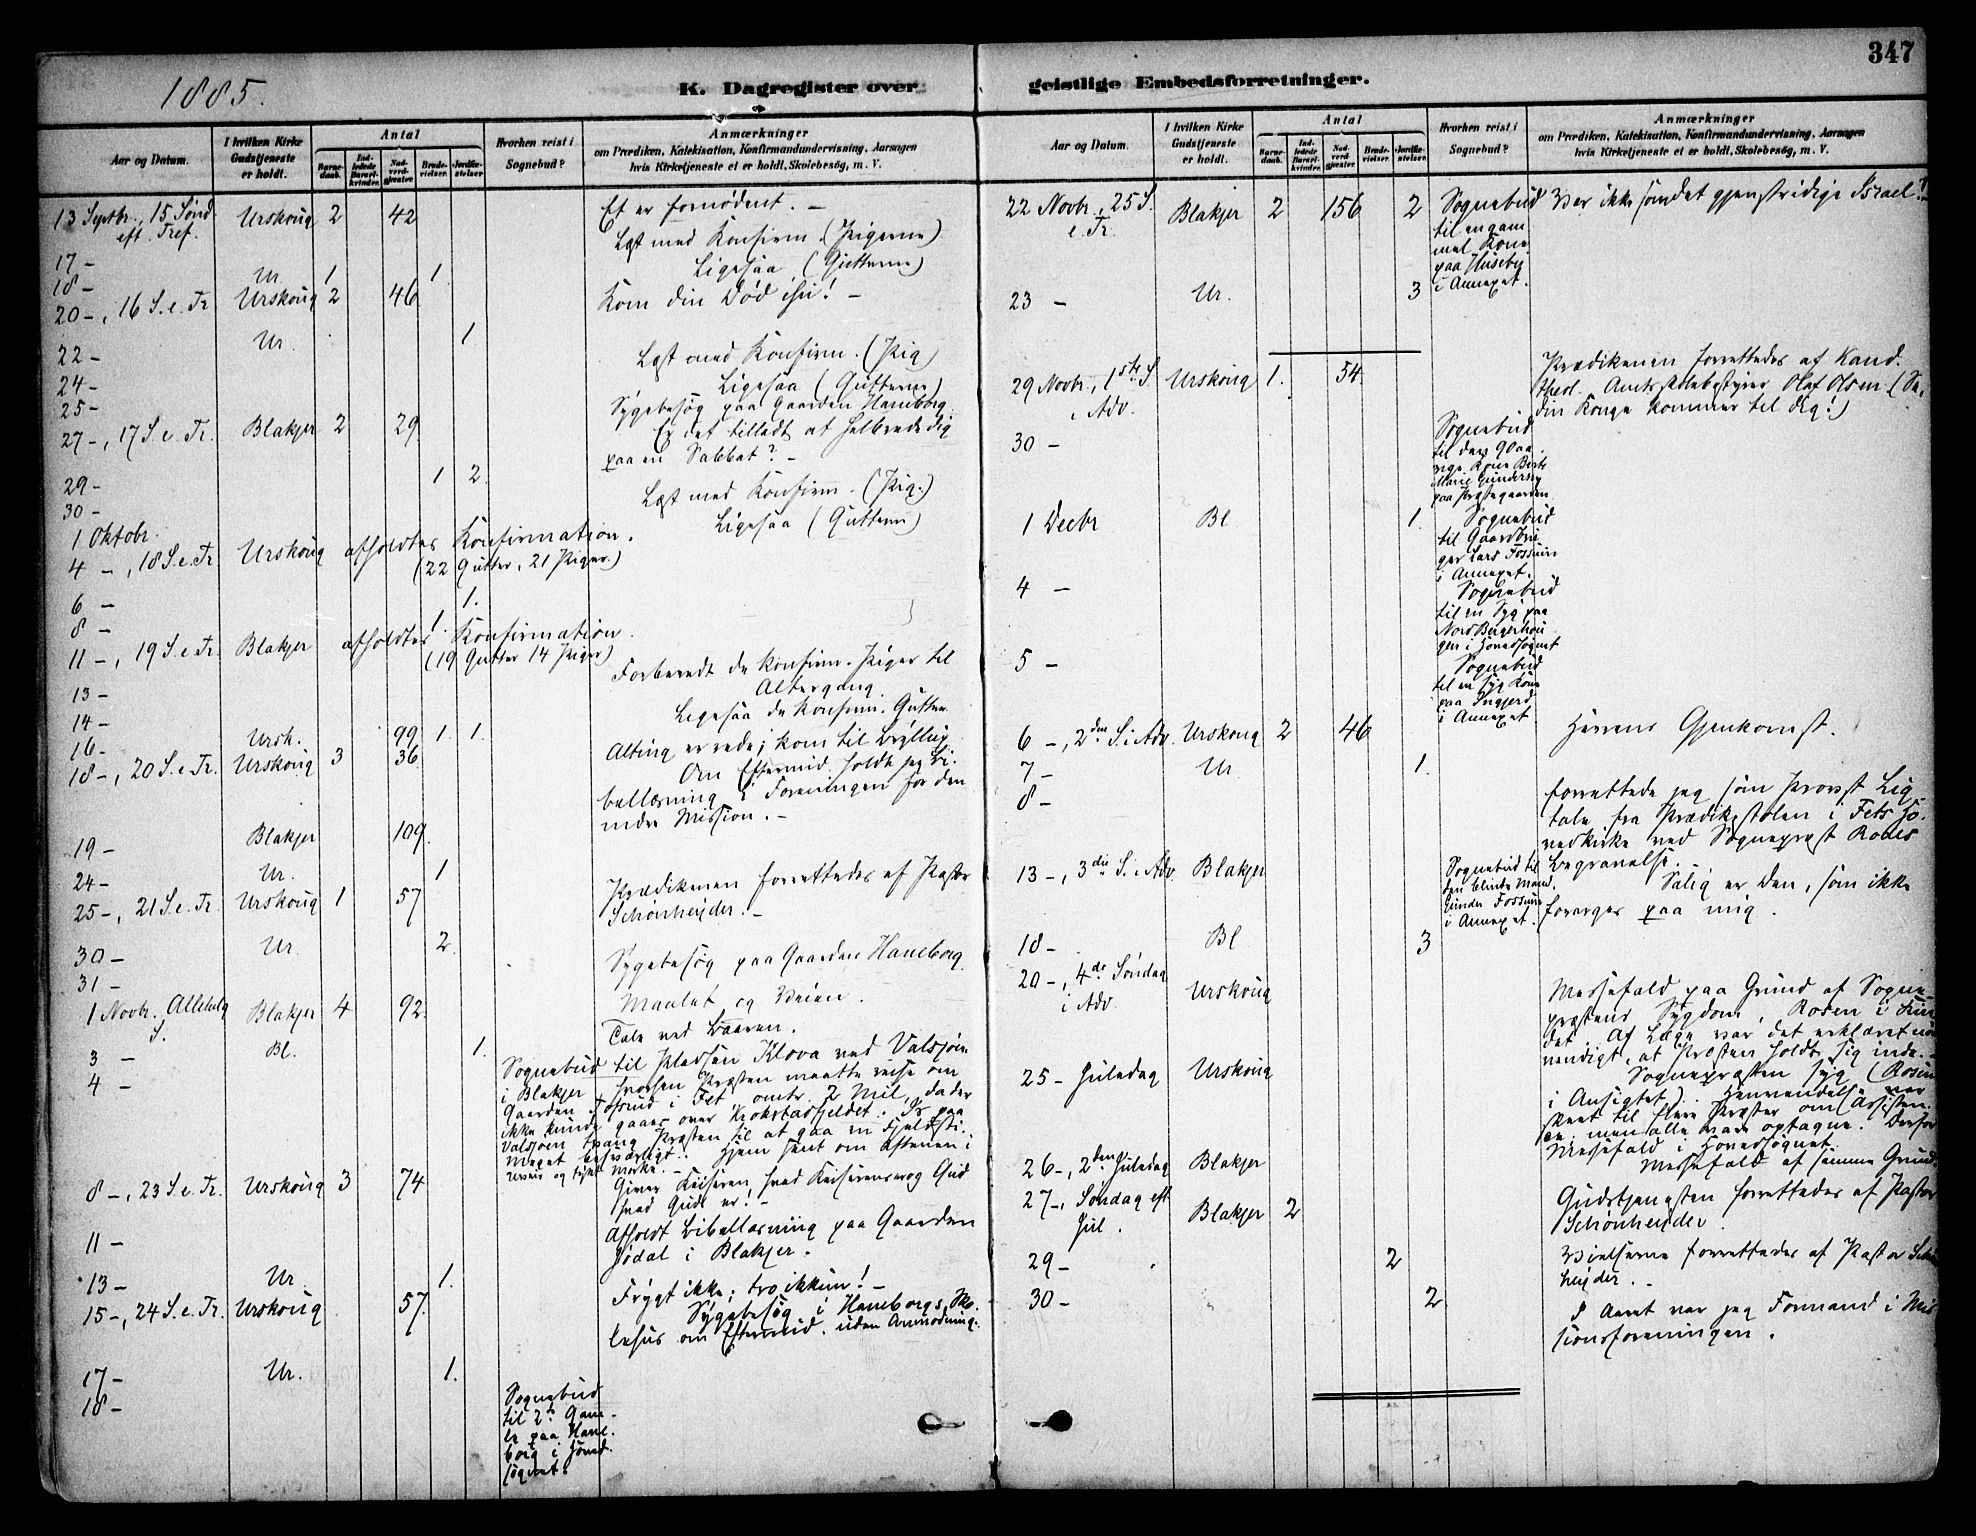 347
1885.
K. Dagregister over geistlige Embedsforretninger.
Aar og Datum.
I hvilken Kirke Gudstjeneste er holdt.
Antal
Barnedaab.
Indledede Barselkvinder.
Nadverdgjester.
Brudevielser.
Jordfæstelser.
Hvorhen reist i Sognebud?
Anmærkninger
om Prædiken, Katekisation, Konfirmandundervisning, Aarsagen
hvis Kirketjeneste ei er holdt, Skolebesøg, m. V.
13 Septbr., 15 Sønd. eft. Tref. Urskoug 2 42 Et er fornødent. –
17 – Læst med Konfirm. (Pigerne)
18 – Ur. 1 1 Ligesaa (Gutterne)
20 –, 16 S. e. Tr. Urskoug 2 46 Kom din Død ihu! –
22 – Ur. 1
24 – Læst med Konfirm. (Pig.)
25 – Ligesaa (Gutterne)
Sygebesøg paa Gaarden Haneborg.
27 –, 17 S. e. Tr. Blakjer 2 29 Er det tilladt at helbrede dig
paa en Sabbat? –
29 – 1 2
30 – Læst med Konfirm. (Pig.)
1 Oktobr. Ligesaa (Gutterne)
4 –, 18 S. e. Tr. Urskoug afholdtes Konfirmation.
(22 Gutter, 21 Piger.)
6 – 1.
8 – 1.
11 –, 19 S. e. Tr. Blakjer afholdtes Konfirmation.
(19 Gutter 14 Piger)
13 – Forberedt de Konfirm. Piger til
Altergang.
14 – Ligesaa de Konfirm. Gutter
16 – Ursk. 99 1. 1.
18 –, 20 S. e. Tr. Urskoug 3 36 Alting er rede; kom til Bryllup
Om Eftermid. holdt jeg Bi-
bellæsning i Foreningen for den
indre Mission. –
19 – Blakjer 109.
24 – Ur. 1
25 –, 21 S. e. Tr. Urskoug 1 57 Prædikenen forrettedes af Pastor
Schönheyder. –
30 – Ur. 2.
31 – Sygebesøg paa Gaarden Haneborg.
1 Novbr. Allehelg. S. Blakjer 4 92. Maalet og Veien.
3 – Bl. 1. Tale ved Baaren.
4 – Sognebud til Pladsen Klova ved Valsjøen
i Blakjer hvorhen Præsten maatte reise om
Gaarden Fossrud i Fet omtr. 2 Mil, da der
ikke kunde gaaes over Krokstadfjeldet. Fra
Valsjøen tvang Præsten til at gaa en Fjeldsti.
Meget besværligt. Hjem sent om Aftenen i
og tykt Mørke. –
8 –, 23 S. e. Tr. Urskoug 3 74 Giver Keiseren, hvad Keiserens er og Gud
hvad Guds er! –
11 – Afholdt Bibellæsning paa Gaarden
Jødal i Blakjer.
13 – Ur. 1.
15 –, 24 S. e. Tr. Urskoug 57. Frygt ikke; tro ikkun! –
Sygebesøg i Haneborgs Sko-
lehus om Eftermid. uden Anmodning.
17 – Ur. 1.
18 – Sognebud
til 2 Gam-
le paa Hane-
borg i Hoved-
sognet.
Aar og Datum.
I hvilken Kirke Gudstjeneste er holdt.
Antal
Barnedaab.
Indledede Barselkvinder.
Nadverdgjester.
Brudevielser.
Jordfæstelser.
Hvorhen reist i Sognebud?
Anmærkninger
om Prædiken, Katekisation, Konfirmandundervisning, Aarsagen
hvis Kirketjeneste ei er holdt, Skolebesøg, m. V.
22 Novbr., 25 S. e. Tr. Blakjer 2 156 2 Sognebud Vær ikke som det gjenstridige Israel!
til en gam
mel Kone
paa Huseby
i Annexet.
23 – Ur. 3
29 Novbr., 1ste S. i Adv. Urskoug 1. 54. Prædikenen forrettedes af Kand.
theol. Amtsskolebestyrer Olaf Olsen (Se,
din Konge kommer til dig!)
30 – Sognebud
til den 90aa-
rige Kone Berte
Marie Gundersen
paa Præstegaarden
1 Decbr Bl 1. Sognebud
til Gaardbru
ger Lars Fossum
i Annexet.
4 – Sognebud
til en Syg paa
Nord Bergerhou
gen i Hovedsognet
5 – Sognebud
til en syg Kone
paa Ingjerd
i Annexet
6 –, 2den S. i Adv. Urskoug 2 46 Herrens Gjenkomst.
7 – Ur 1.
8 – forrettede jeg som Provst Lig-
tale fra Prædikestolen i Fets Ho-
vedkirke ved Sognepræst Rodes
Begravelse.
13 –, 3die S. i Adv. Blakjer Sognebud til
den blinde Mand
Gunder Fossum
i Annexet.
Salig er den, som ikke
forarges paa mig.
18 – Bl 3
20 –, 4de Søndag i Adv. Urskoug Messefald paa Grund af Sogne-
præstens Sygdom, Rosen i Hin
det. Af Læge var det erklæret nød
vendigt, at Præsten holdt sig inde. –
25 – Juledag Urskoug Sognepræsten syg (Rosen
i Ansigtet). Henvendelse var
skeet til flere Præster om Assisten-
ce, men alle vare optagne. Derfor
Messefald i Hovedsognet.
26 –, 2den Juledag Blakjer Messefald af samme Grund.
27 –, Søndag eft. Jul. Blakjer 2 Gudstjenesten forrettedes af Pastor
Schönheyder.
29 – 2 Vielserne forrettedes af Pastor Schön
heyder. –
30 – 2 I Aaret var jeg Formand i Mis
sionsforeningen.